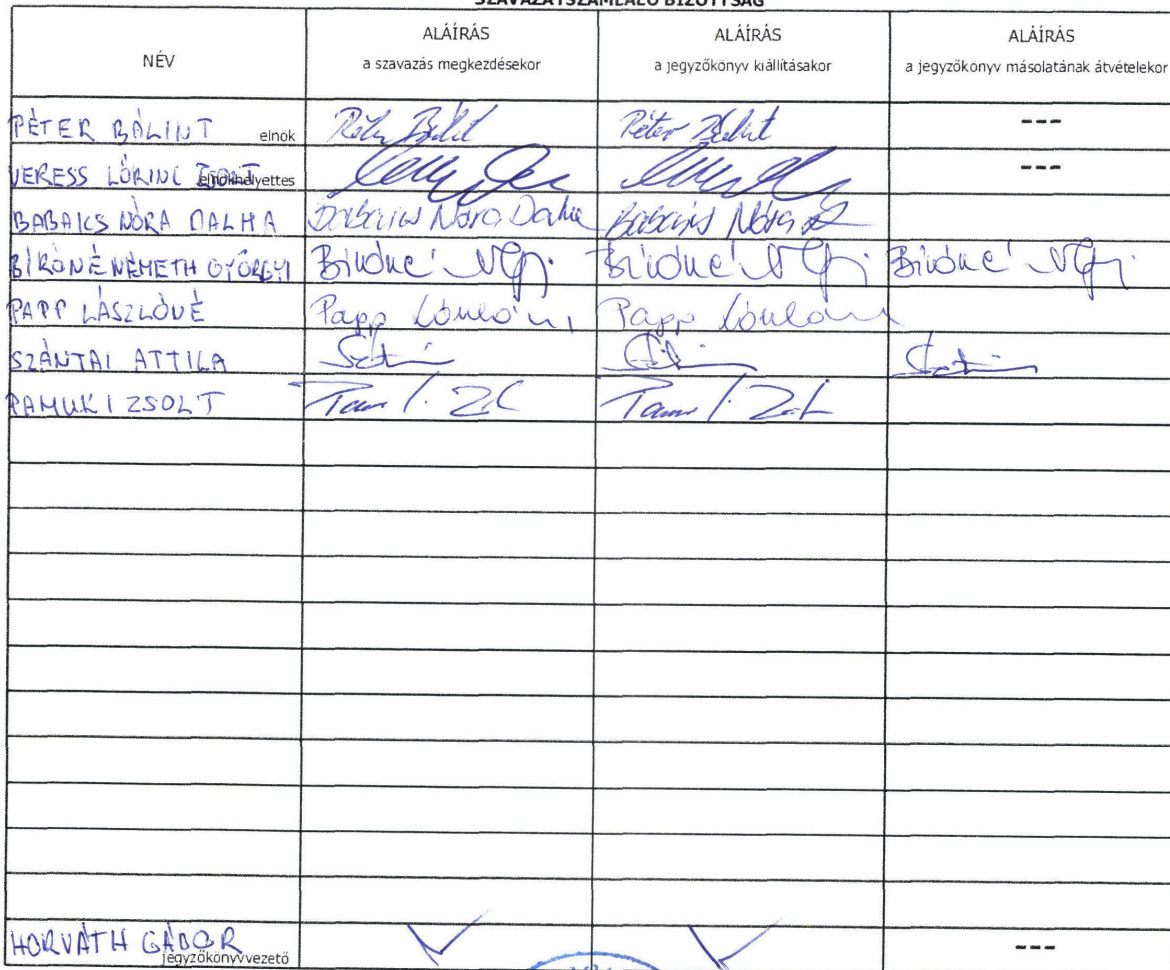 SZAVAZATSZÁMLÁLÓ BIZOTTSÁG
NÉV
ALÁÍRÁS
a szavazás megkezdésekor
ALÁÍRÁS
a jegyzőkönyv kiállításakor
ALÁÍRÁS
a jegyzőkönyv másolatának átvételekor
PÉTER BÁLINT elnök Péter Bálint Péter Bálint ---
VERESS LŐRINC ZSOLT elnökhelyettes ---
BABAICS NÓRA DALMA Babaics Nóra Dalma Babaics Nóra D
BÍRÓNÉ NÉMETH GYÖRGYI Bíróné N Gyi. Bíróné N Gyi. Bíróné N Gyi.
PAPP LÁSZLÓNÉ Papp Lászlóné Papp Lászlóné
SZÁNTAI ATTILA
PAMUKI ZSOLT
HORVÁTH GÁBOR jegyzőkönyvvezető ---